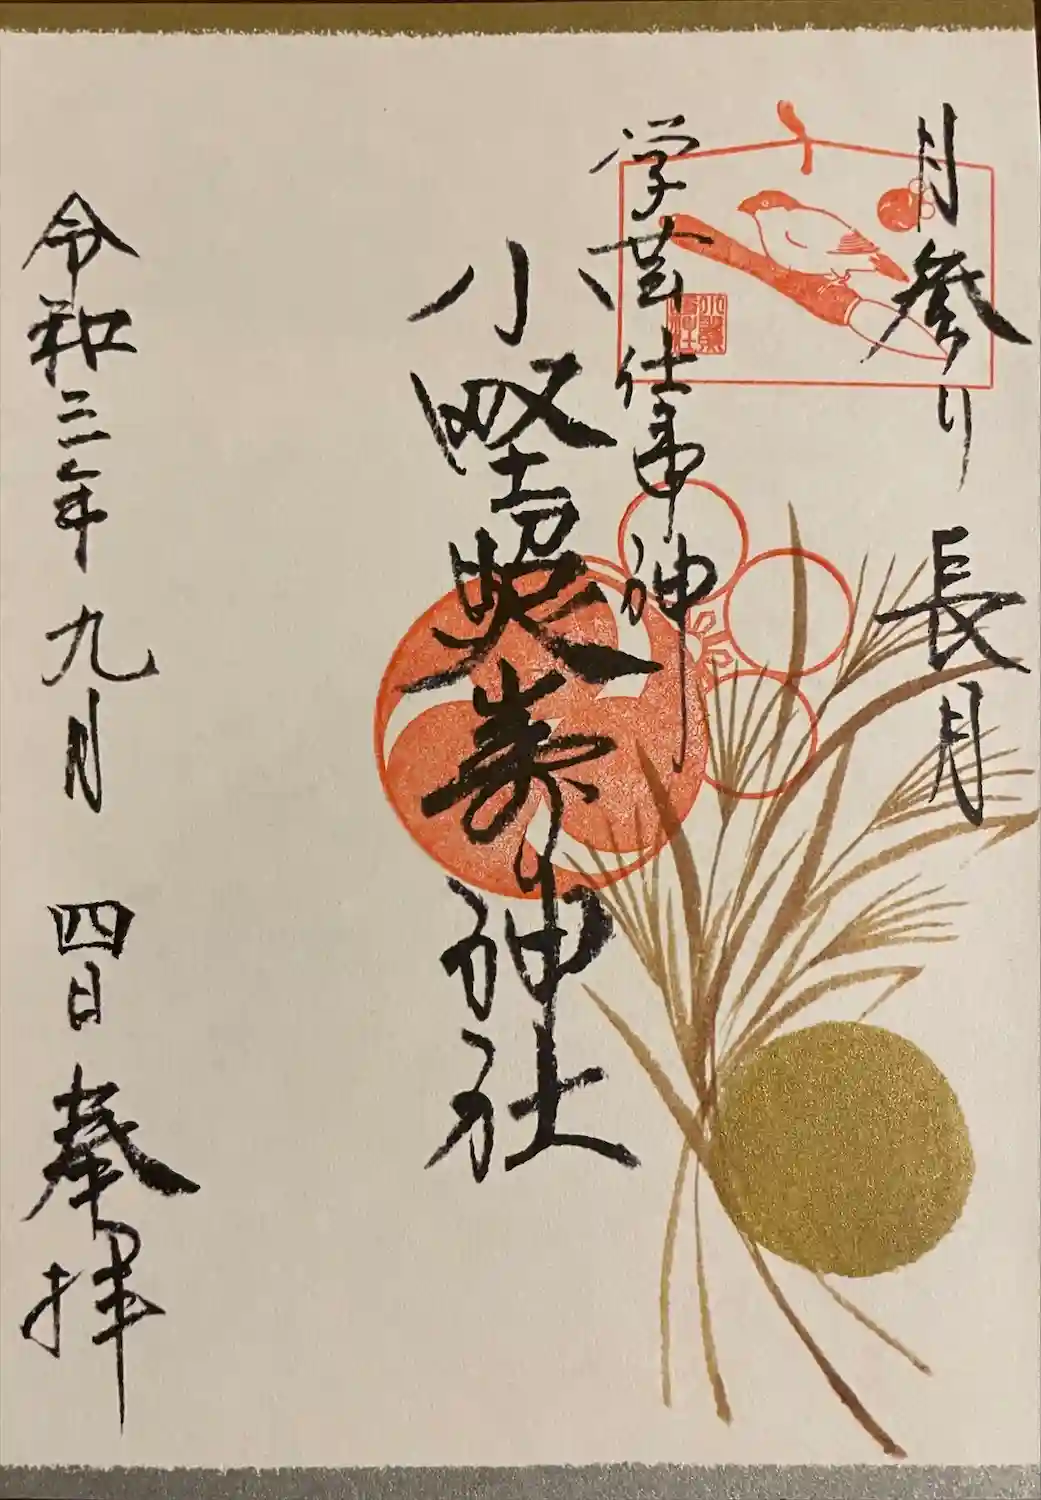 月参り 長月
学芸仕事神
小野照崎神社
令和三年 九月 四日 奉拝